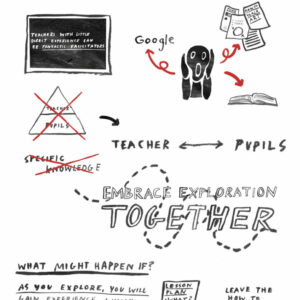 TEACHERS WITH LITTLE
DIRECT EXPERIENCE CAN
BE FANTASTIC FACILITATORS
Google
TEACHER
PUPILS
TEACHER ↔ PUPILS
SPECIFIC
KNOWLEDGE
EMBRACE EXPLORATION
TOGETHER
WHAT MIGHT HAPPEN IF?
AS YOU EXPLORE, YOU WILL
GAIN EXPERIENCE
LESSON
PLAN
WHAT?
LEAVE THE
HOW TO